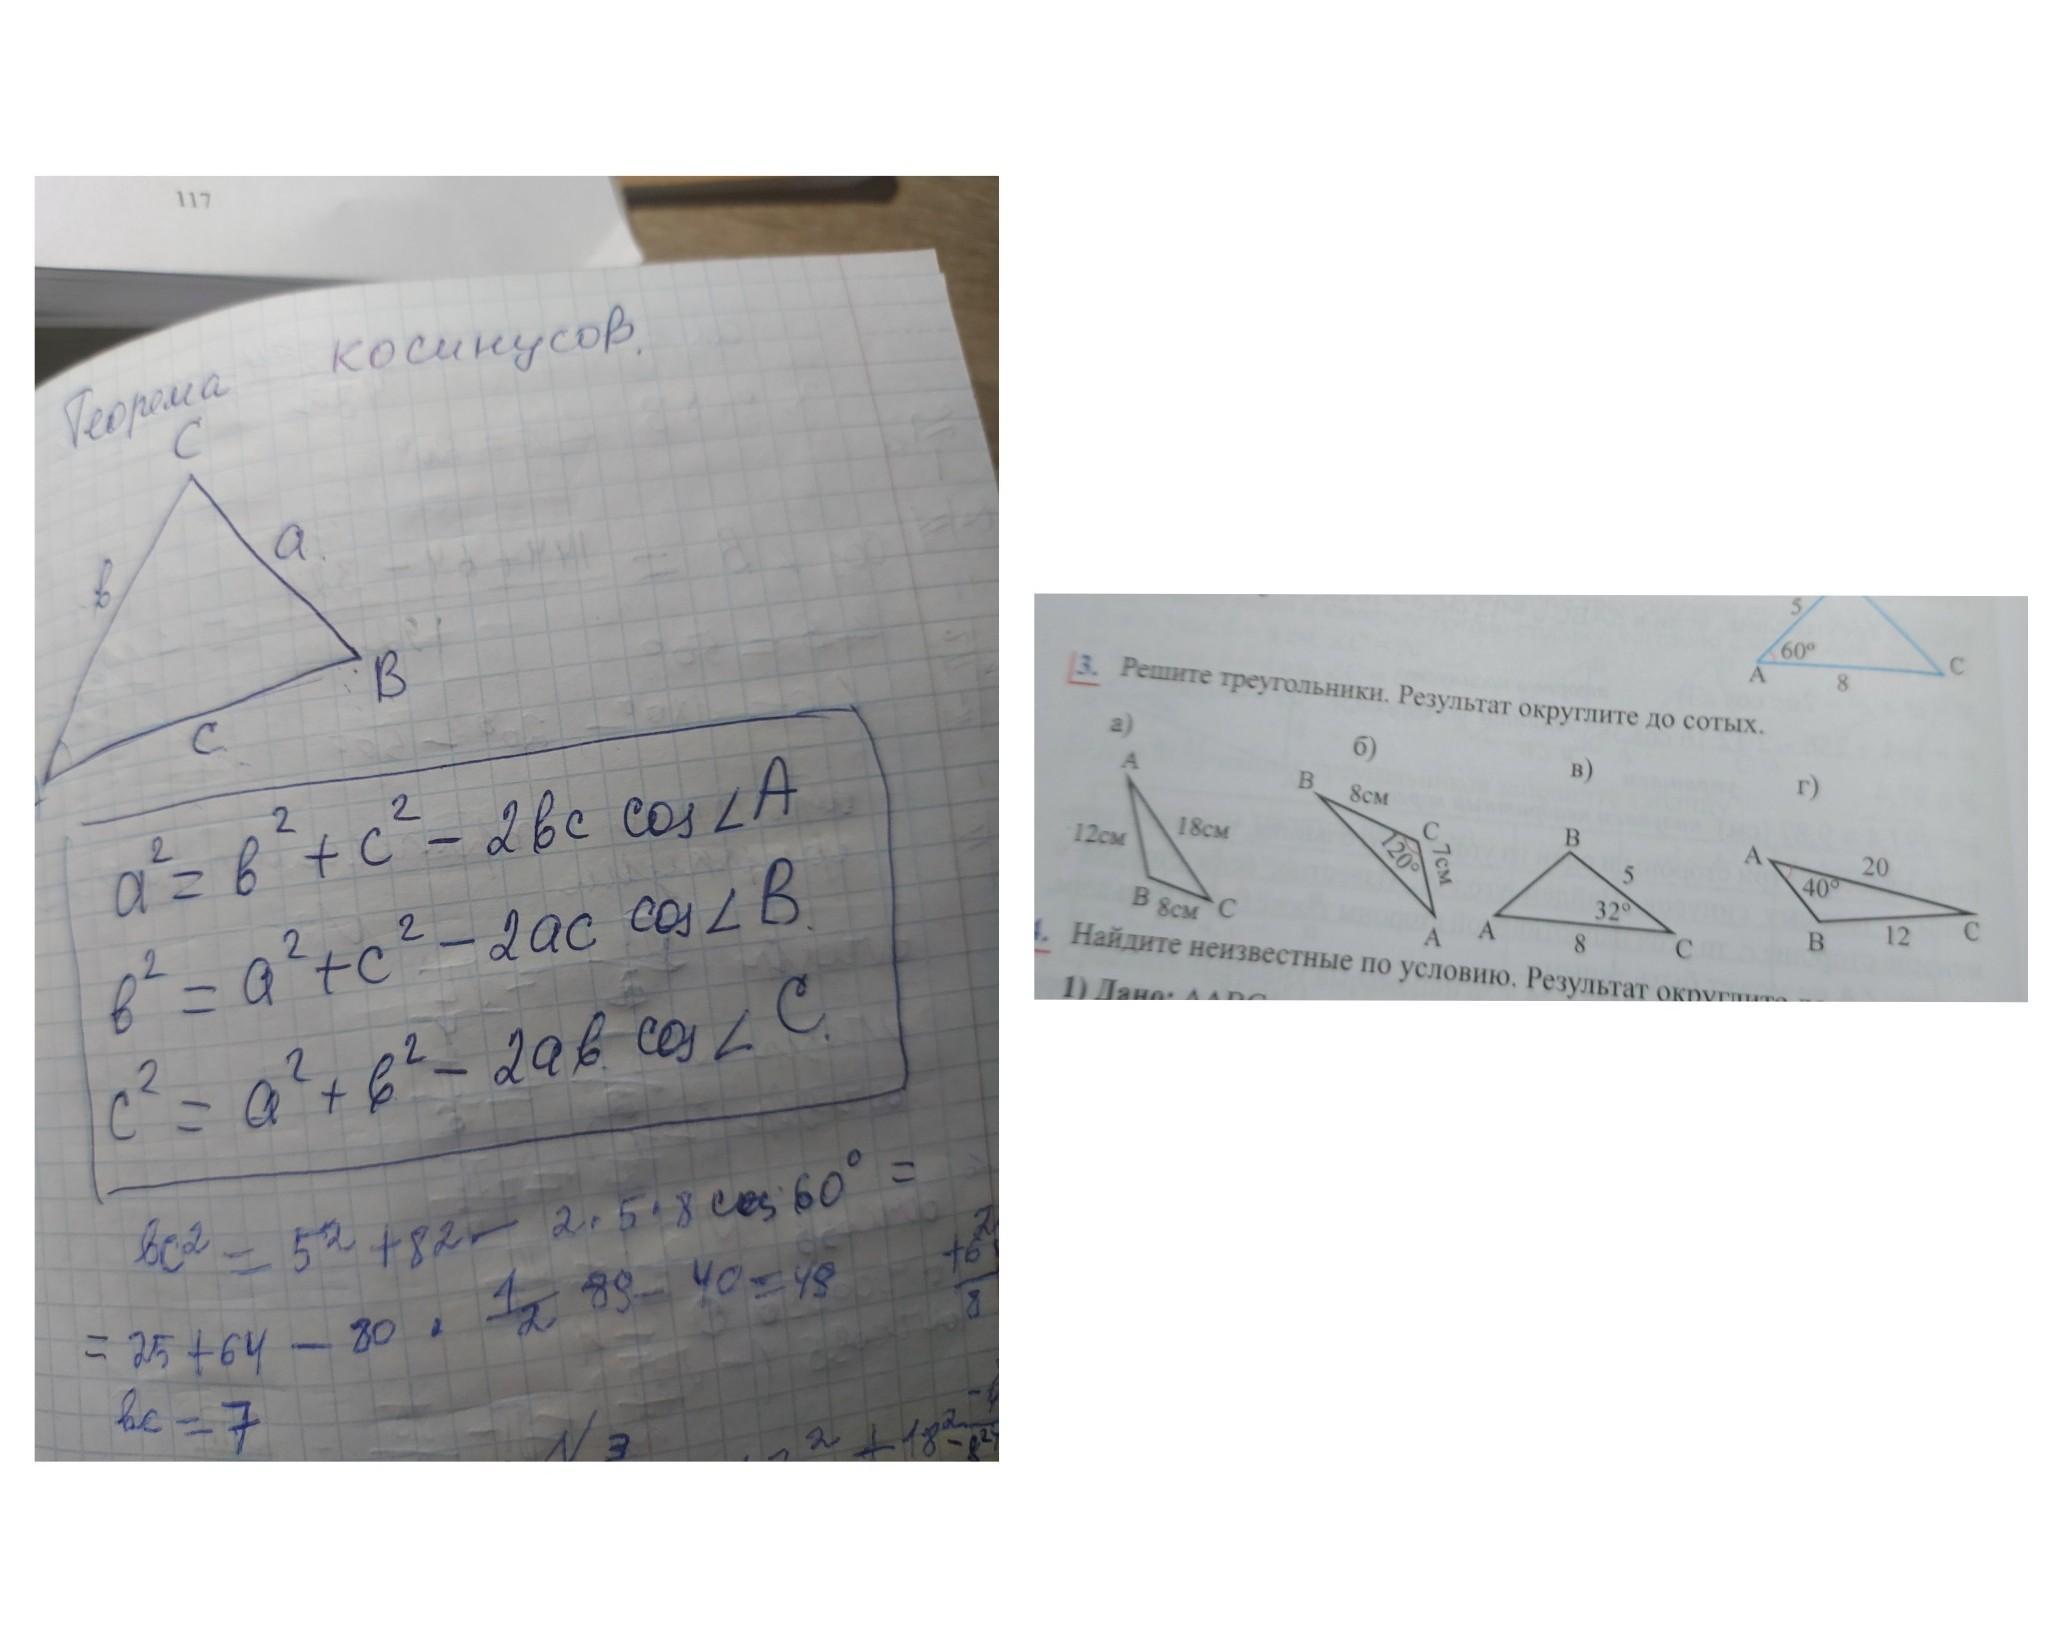 117
Теорема косинусов.
C
a
в
B
c
a² = в² + c² - 2вc cos∠A
в² = a² + c² - 2ac cos∠B.
c² = a² + в² - 2aв cos∠C.
вc² = 5² + 82 - 2·5·8 cos 60° =
= 25 + 64 - 80 · 1/2 89 - 40 = 49
вc = 7
N 3
² + 18² -
5
60°
A
8
C
3. Решите треугольники. Результат округлите до сотых.
а)
A
12см
18см
B
8см
C
б)
B
8см
C
120°
7см
A
в)
B
5
32°
A
8
C
г)
A
20
40°
B
12
C
Найдите неизвестные по условию. Результат округлите
1) Дано: △ABC